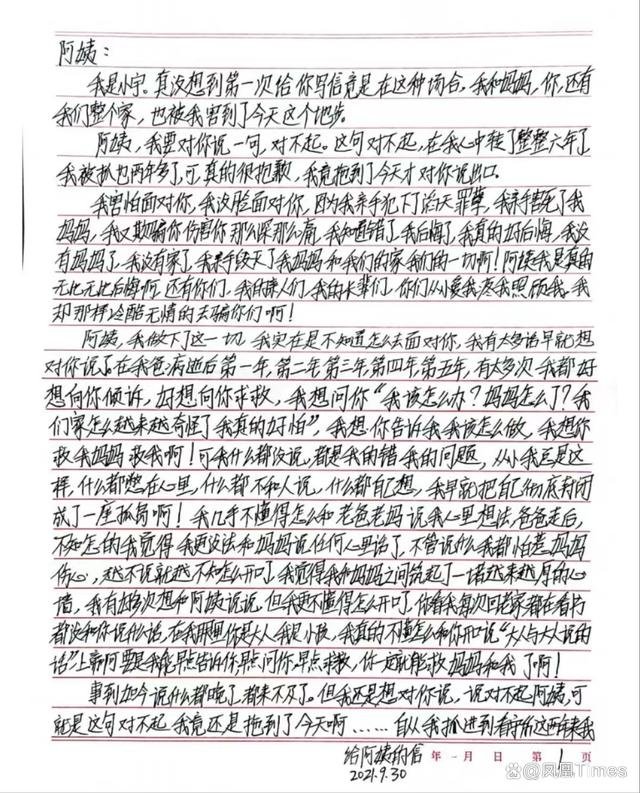 阿姨：
我是小宇。真没想到第一次给你写信竟是在这种场合。我和妈妈，你，还有
我们整个家，也被我害到了今天这个地步。
阿姨，我要对你说一句，对不起。这句对不起，在我心中转了整整六年了
我被抓也两年多了，可，真的很抱歉，我竟拖到了今天才对你说出口。
我害怕面对你，我没脸面对你，因为我亲手犯下了滔天罪孽，我亲手害死了我
妈妈，我又欺骗你伤害你那么深那么痛，我知道错了，我后悔了，我真的好后悔，我没
有妈妈了，我没有家了，我亲手毁灭了我妈妈和我们的家我们的一切啊！阿姨我是真的
无比无比后悔啊，还有你们，我的亲人们，我的长辈们，你们从小爱我疼我照顾我，我
却那样冷酷无情的去骗你们啊！
阿姨，我做下了这一切，我实在是不知道怎么去面对你，我有太多话早就想
对你说了。在我爸病逝后第一年，第二年，第三年，第四年，第五年，有太多次我都好
想向你倾诉，好想向你求救，我想问你“我该怎么办？妈妈怎么了？我
们家怎么越来越奇怪了我真的好怕”，我想你告诉我我该怎么做，我想你
救我妈妈救我啊！可我什么都没说，都是我的错我的问题，从小我总是这
样，什么都憋在心里，什么都不和人说，什么都自己想，我早就把自己彻底封闭
成了一座孤岛啊！我几乎不懂得怎么和老爸老妈说我心里想法，爸爸走后，
不知怎的我觉得我更没法和妈妈说任何心里话了，不管说什么我都怕惹妈妈
伤心，越不说就越不知怎么开口了，我觉得我和妈妈之间筑起了一堵越来越厚的心
墙，我有好多次想和阿姨说说，但我更不懂得怎么开口了，你看我每次回老家都在看书
都没和你说什么话，在我眼里你是大人我是小孩，我真的不懂怎么和你开口说“大人与大人说的
话”上啊阿要是我能早点告诉你，早点问你，早点求救，你一定就能救妈妈和我了啊！
事到如今说什么都晚了，都来不及了。但我还是想对你说，说对不起阿姨，可
就是这句对不起 我竟还是拖到了今天啊……自从我抓进到看守所这两年来我
给阿姨的信
2021.9.30
年 月 日 第 1 页
凤凰Times